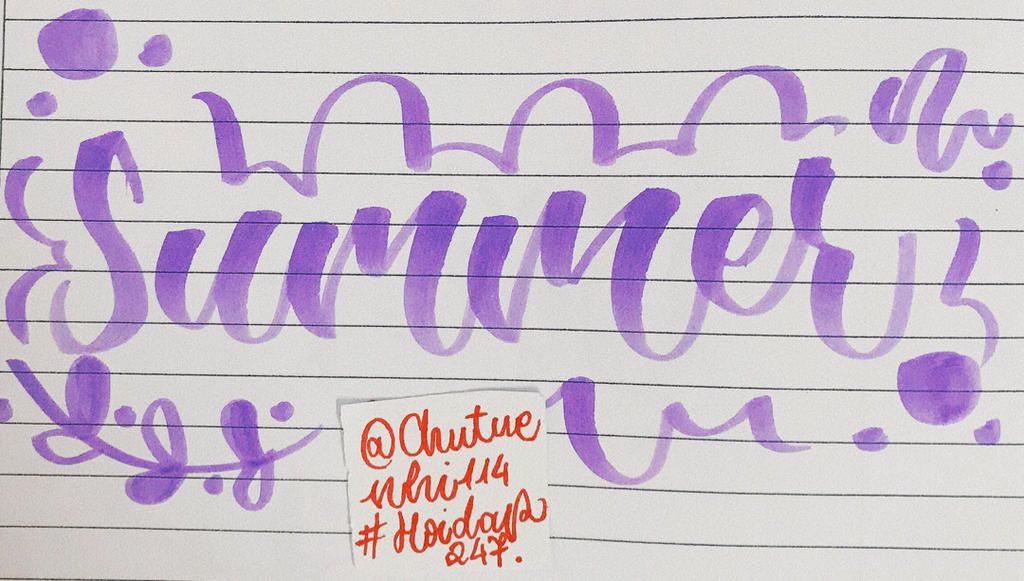 Summer
@Chutue
nhi1114
#Hoidap
247.